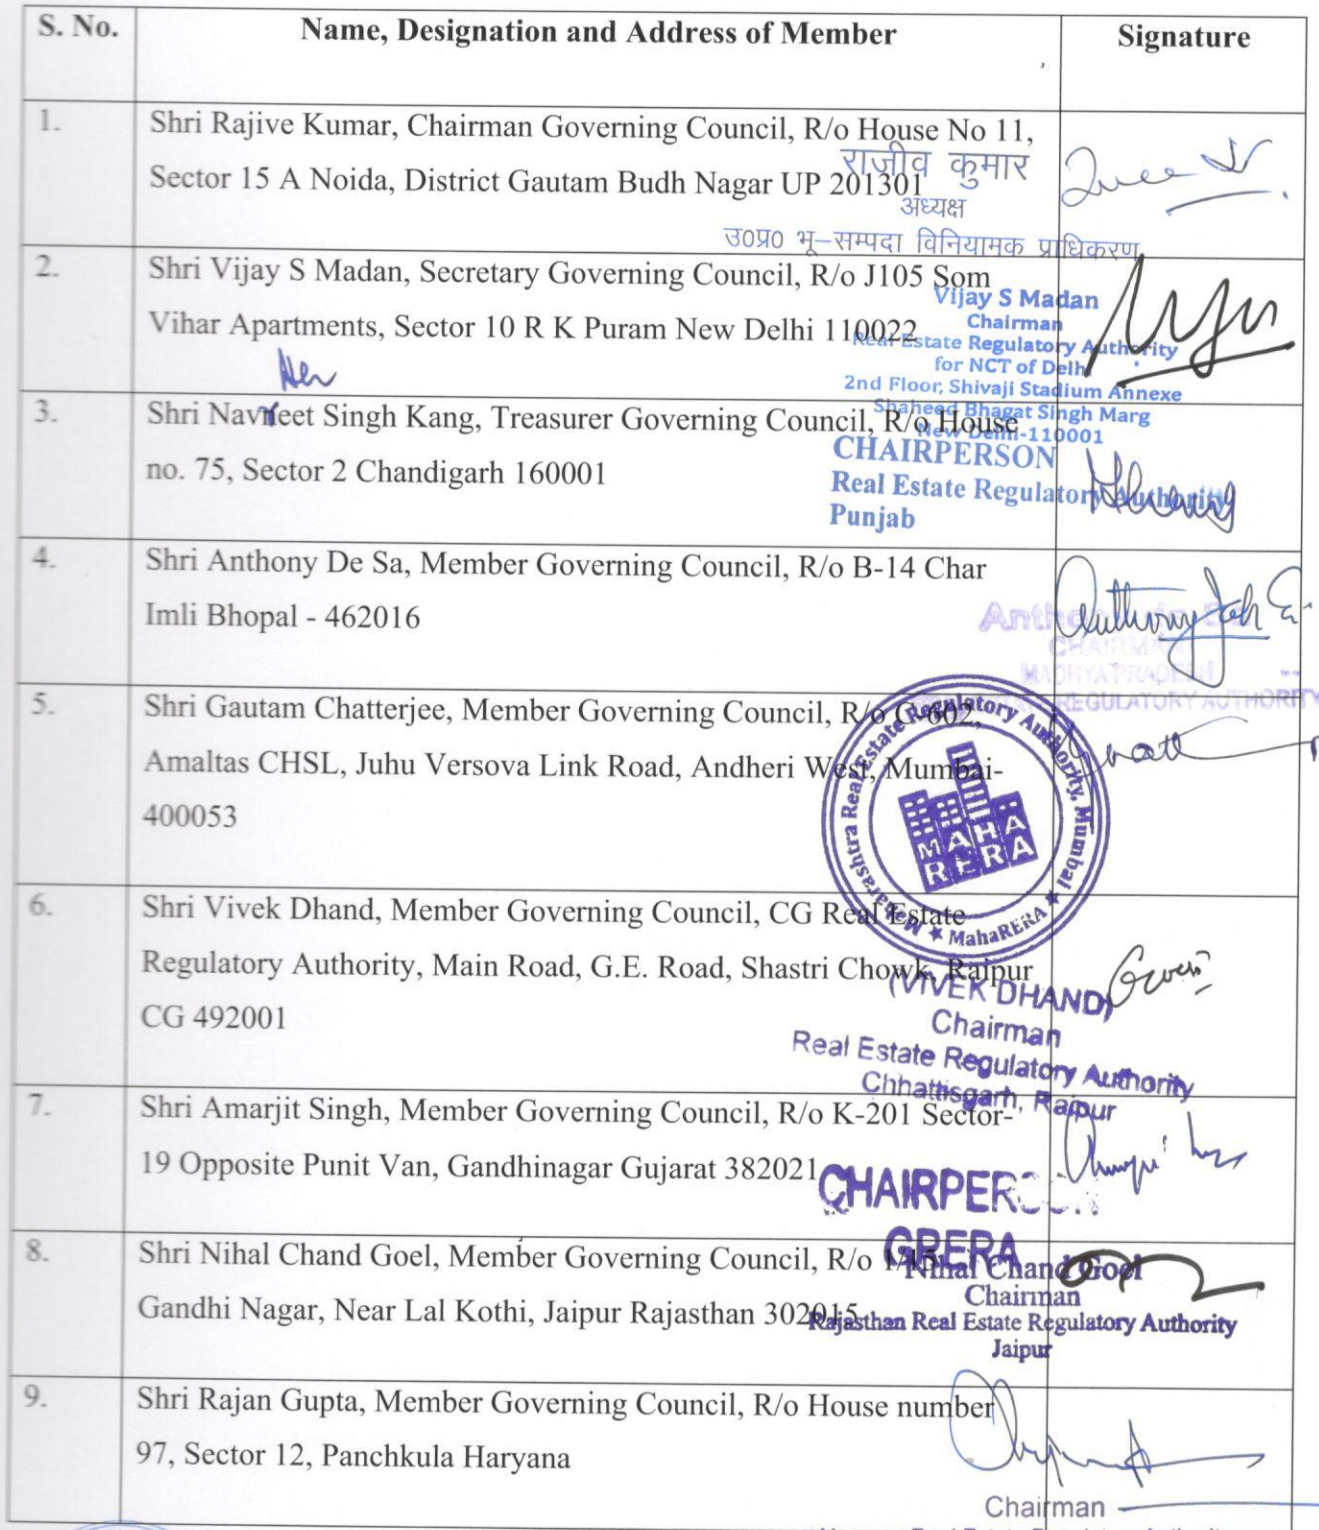 S. No. Name, Designation and Address of Member Signature
1. Shri Rajive Kumar, Chairman Governing Council, R/o House No 11,
Sector 15 A Noida, District Gautam Budh Nagar UP 201301
राजीव कुमार
अध्यक्ष
उ०प्र० भू-सम्पदा विनियामक प्राधिकरण
2. Shri Vijay S Madan, Secretary Governing Council, R/o J105 Som
Vihar Apartments, Sector 10 R K Puram New Delhi 110022
Vijay S Madan
Chairman
Real Estate Regulatory Authority
for NCT of Delhi
2nd Floor, Shivaji Stadium Annexe
Shaheed Bhagat Singh Marg
New Delhi-110001
3. Shri Navreet Singh Kang, Treasurer Governing Council, R/o House
no. 75, Sector 2 Chandigarh 160001
CHAIRPERSON
Real Estate Regulatory Authority
Punjab
4. Shri Anthony De Sa, Member Governing Council, R/o B-14 Char
Imli Bhopal - 462016
Anthony de Sa
CHAIRMAN
MADHYA PRADESH
REGULATORY AUTHORITY
5. Shri Gautam Chatterjee, Member Governing Council, R/o C-602,
Amaltas CHSL, Juhu Versova Link Road, Andheri West, Mumbai-
400053
Maharashtra Real Estate Regulatory Authority, Mumbai
MAHA
RERA
MahaRERA
6. Shri Vivek Dhand, Member Governing Council, CG Real Estate
Regulatory Authority, Main Road, G.E. Road, Shastri Chowk, Raipur
CG 492001
(VIVEK DHAND)
Chairman
Real Estate Regulatory Authority
Chhattisgarh, Raipur
7. Shri Amarjit Singh, Member Governing Council, R/o K-201 Sector-
19 Opposite Punit Van, Gandhinagar Gujarat 382021
CHAIRPERSON
GRERA
8. Shri Nihal Chand Goel, Member Governing Council, R/o 1/15
Gandhi Nagar, Near Lal Kothi, Jaipur Rajasthan 302015
Nihal Chand Goel
Chairman
Rajasthan Real Estate Regulatory Authority
Jaipur
9. Shri Rajan Gupta, Member Governing Council, R/o House number
97, Sector 12, Panchkula Haryana
Chairman